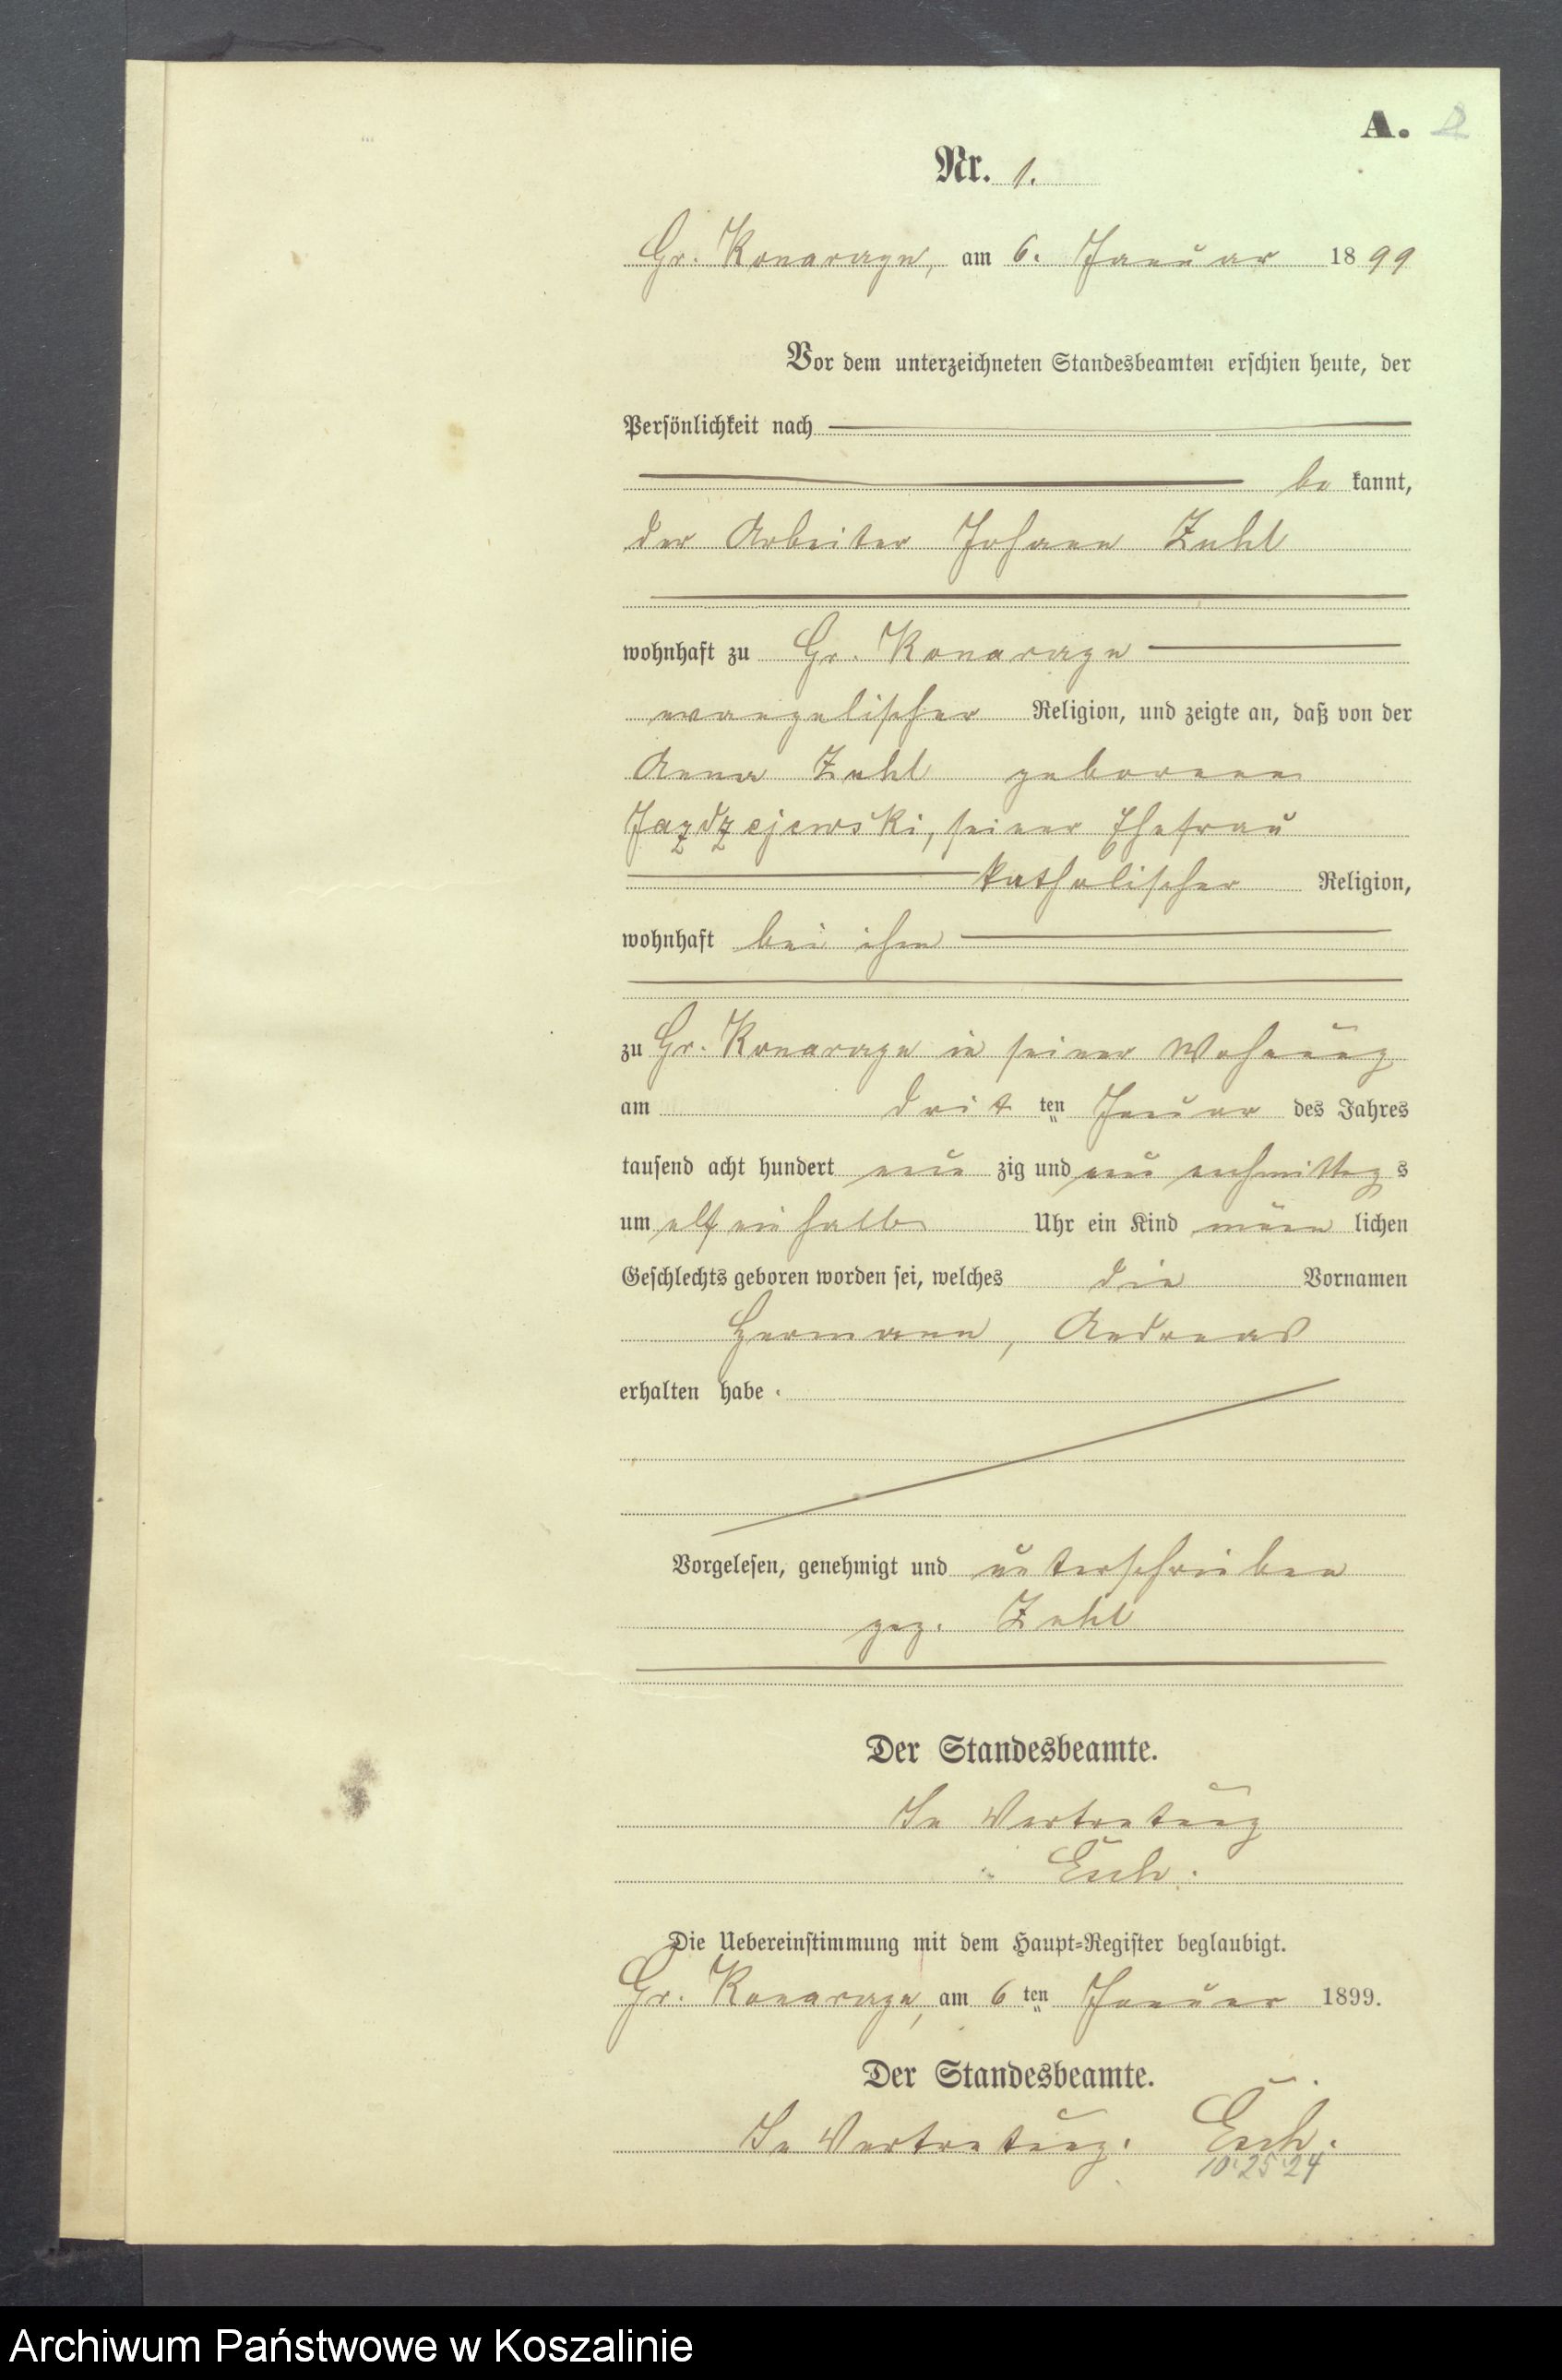 A. 2
Nr. 1.
Gr. Konarczyn, am 6. Januar 1899
Vor dem unterzeichneten Standesbeamten erschien heute, der
Persönlichkeit nach
be kannt,
der Arbeiter Johann Zuhl
wohnhaft zu Gr. Konarczyn
evangelischer Religion, und zeigte an, daß von der
Anna Zuhl geborenen
Jazdzejewski, seiner Ehefrau
katholischer Religion,
wohnhaft bei ihm
zu Gr. Konarczyn in seiner Wohnung
am drit ten Januar des Jahres
tausend acht hundert neun zig und neun nachmittag s
um elf ein halb Uhr ein Kind männ lichen
Geschlechts geboren worden sei, welches die Vornamen
Hermann, Andreas
erhalten habe.
Vorgelesen, genehmigt und unterschrieben
gez. Zuhl
Der Standesbeamte.
In Vertretung
Esch.
Die Uebereinstimmung mit dem Haupt-Register beglaubigt.
Gr. Konarczyn, am 6 ten Januar 1899.
Der Standesbeamte.
In Vertretung. Esch.
10 25 24
Archiwum Państwowe w Koszalinie